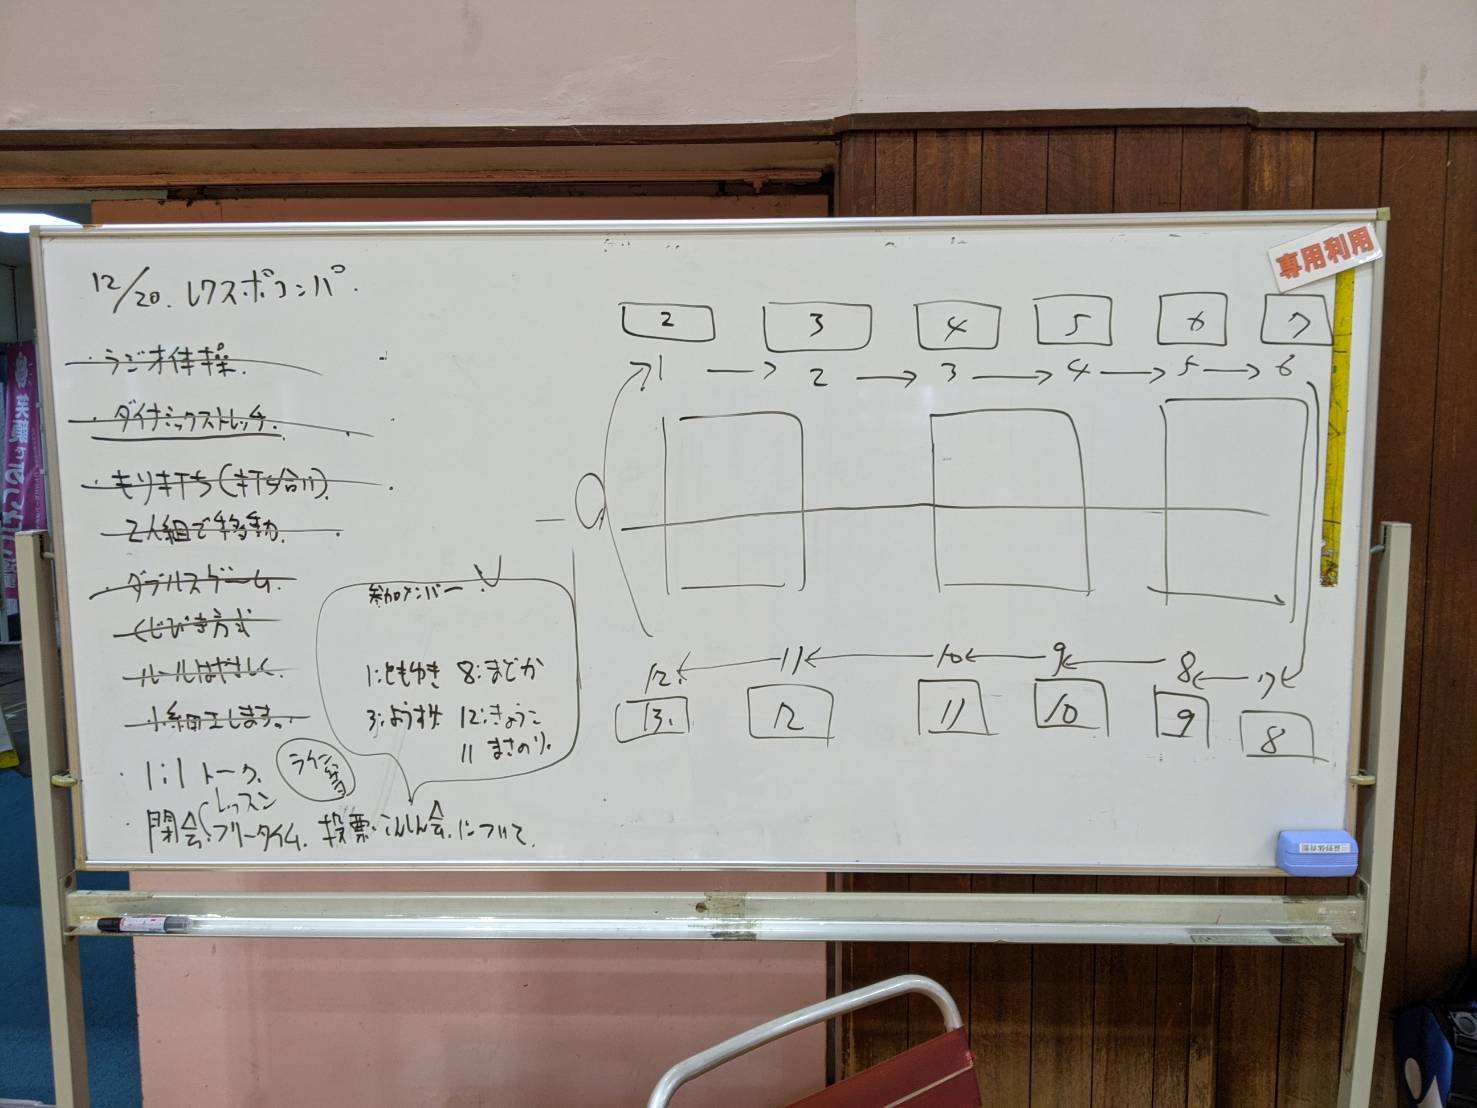 12/20. レクスポコンパ.
・ラジオ体操.
・ダイナミックストレッチ.
・もり打ち(打ち合い).
・2人組で移動.
・ダブルスゲーム.
・くじびき方式
・ルールはやさしく.
・小細工します。
・1:1トーク.
ライン
レッスン
・閉会 フリータイム. 投票・こんしん会.について.
参加メンバー.
1:ともゆき 8:まどか
3:ようすけ 12:きょうこ
11 まさのり.
専用利用
2 3 4 5 6 7
1 → 2 → 3 → 4 → 5 → 6
12. ← 11 ← 10 ← 9 ← 8 ← 7
13. 12 11 10 9 8
笑顔で